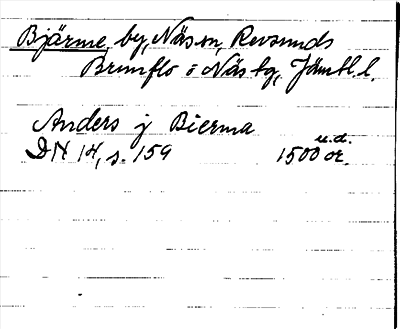 Bjärme by, Näs sn, Revsunds
Brunflo o Näs tg, Jämtl. l.
Anders j Bierma
u.d.
DN 14, s. 159 1500 or.